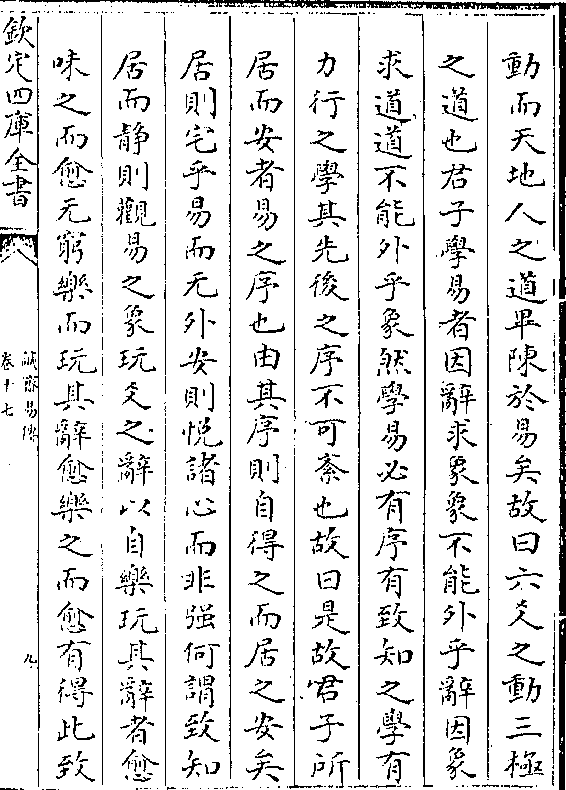 動而天地人之道畢陳於易矣故曰六爻之動三極
之道也君子學易者因辭求象象不能外乎辭因象
求道道不能外乎象然學易必有序有致知之學有
力行之學其先後之序不可紊也故曰是故君子所
居而安者易之序也由其序則自得之而居之安矣
居則宅乎易而无外安則悅諸心而非强何謂致知
居而静則觀易之象玩爻之辭以自樂玩其辭者愈
味之而愈无窮樂而玩其辭愈樂之而愈有得此致
欽定四庫全書
誠齋易傳
卷十七
九